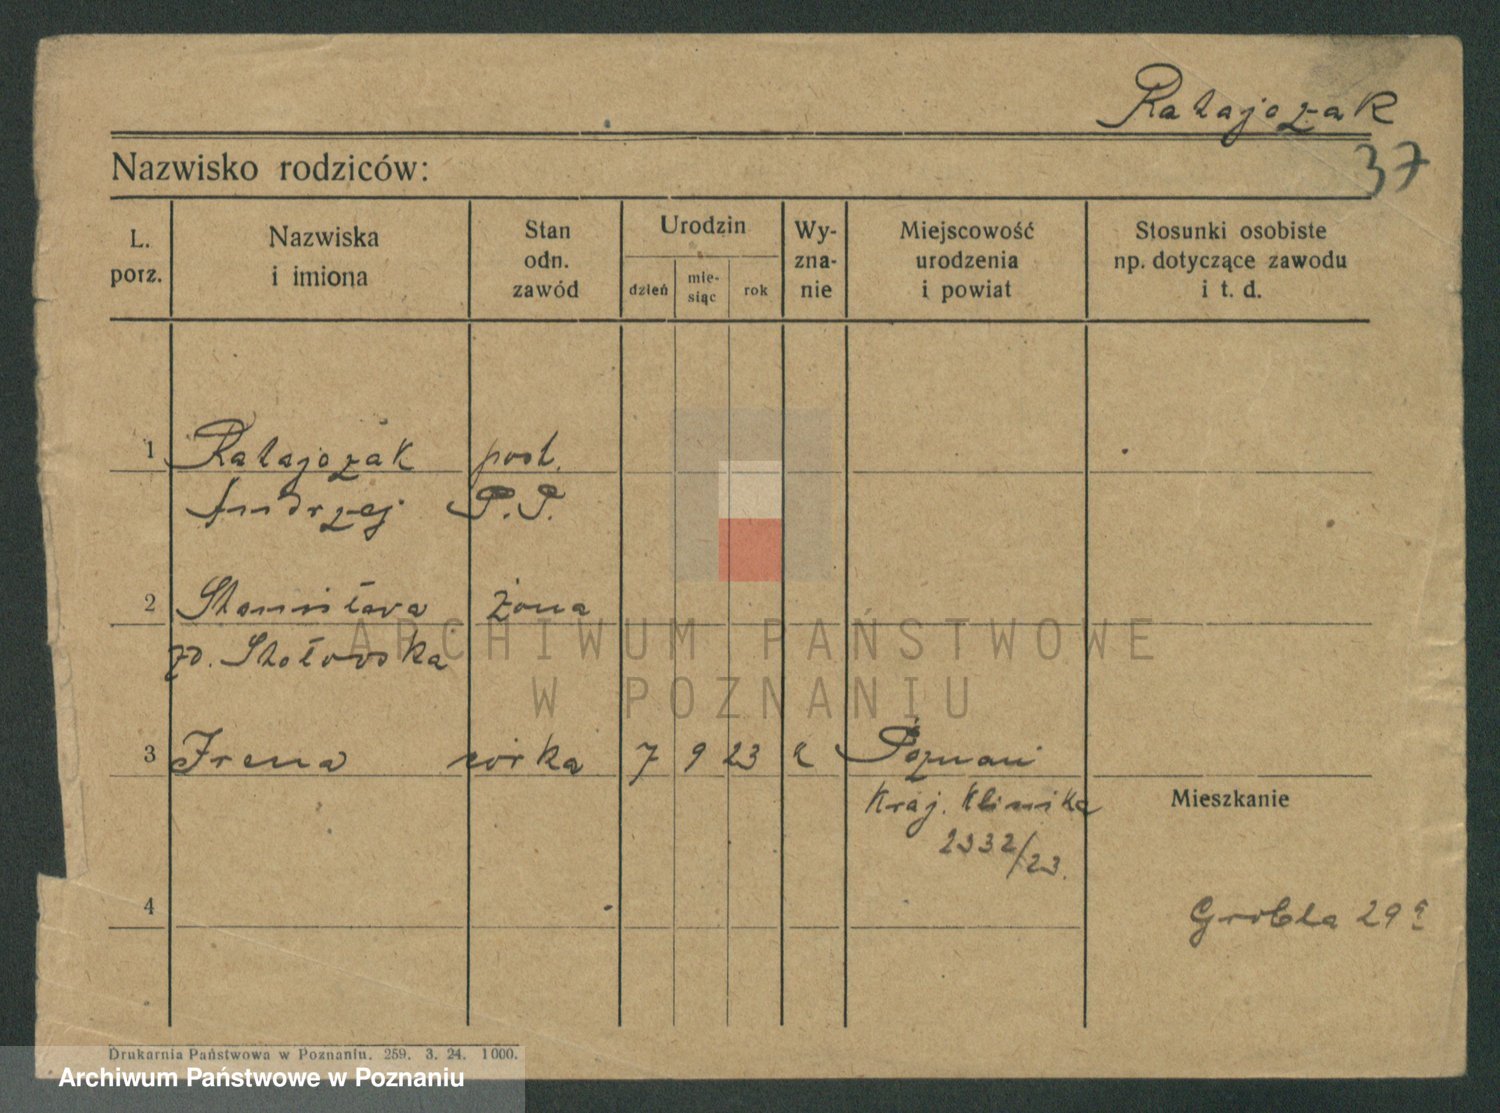 Ratajczak
37
Nazwisko rodziców:
L. porz.
Nazwiska i imiona
Stan odn. zawód
Urodzin
dzień
mie-siąc
rok
Wy-zna-nie
Miejscowość urodzenia i powiat
Stosunki osobiste np. dotyczące zawodu i t. d.
1 Ratajczak post.
Andrzej P.P.
2 Stanisława żona
zd. Stołowska
ARCHIWUM PAŃSTWOWE
W POZNANIU
3 Irena córka 7 9 23 Poznań
Kraj. Klinika
2332/23.
Mieszkanie
4
Grobla 29
Drukarnia Państwowa w Poznaniu. 259. 3. 24. 1000.
Archiwum Państwowe w Poznaniu